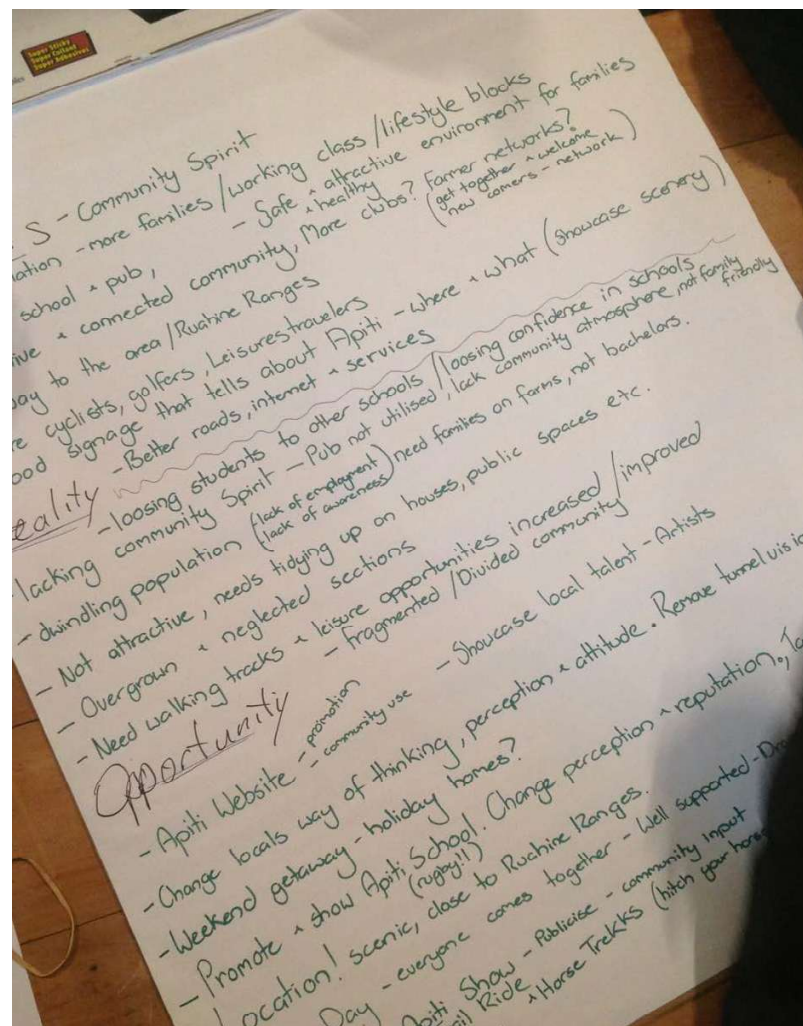 Super Sticky
Super Collant
Super Adhesivos
S - Community Spirit
ation - more families / working class / lifestyle blocks
- Safe & attractive environment for families
& healthy
school & pub,
ive & connected community, More clubs? Farmer networks?
(get together & welcome
new comers - network)
ay to the area / Ruahine Ranges
re cyclists, golfers, Leisures travelers
ood signage that tells about Apiti - where & what (showcase scenery)
- Better roads, internet & services
eality
- loosing students to other schools / loosing confidence in schools
- lacking community Spirit - Pub not utilised, lack community atmosphere, not family friendly
- dwindling population (lack of employment) need families on farms, not bachelors.
(lack of awareness)
- Not attractive, needs tidying up on houses, public spaces etc.
- Overgrown & neglected sections
- Need walking tracks & leisure opportunities increased / improved
- fragmented / Divided community
Opportunity
- Apiti Website - promotion
- community use
- Showcase local talent - Artists
- Change locals way of thinking, perception & attitude. Remove tunnel visio
- Weekend getaway - holiday homes?
- Promote & show Apiti School. Change perception & reputation,
(rugby!!)
Location! scenic, close to Ruahine Ranges.
Day - everyone comes together - Well supported -
Apiti Show - Publicise - community input
Ride & Horse Trekks (hitch your hors